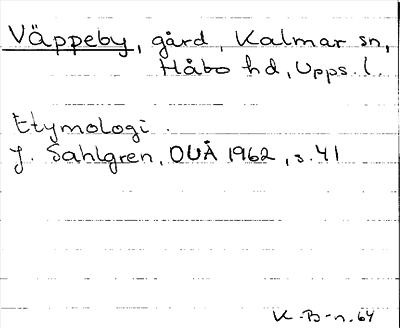 Väppeby, gård, Kalmar sn,
Håbo hd, Upps. l.
Etymologi.
J. Sahlgren, OUÅ 1962, s. 41
K.B-n.64